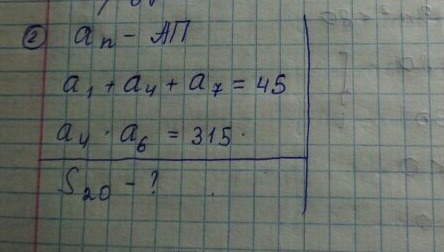 ② aₙ - АП
a₁ + a₄ + a₇ = 45
a₄ · a₆ = 315.
S₂₀ - ?